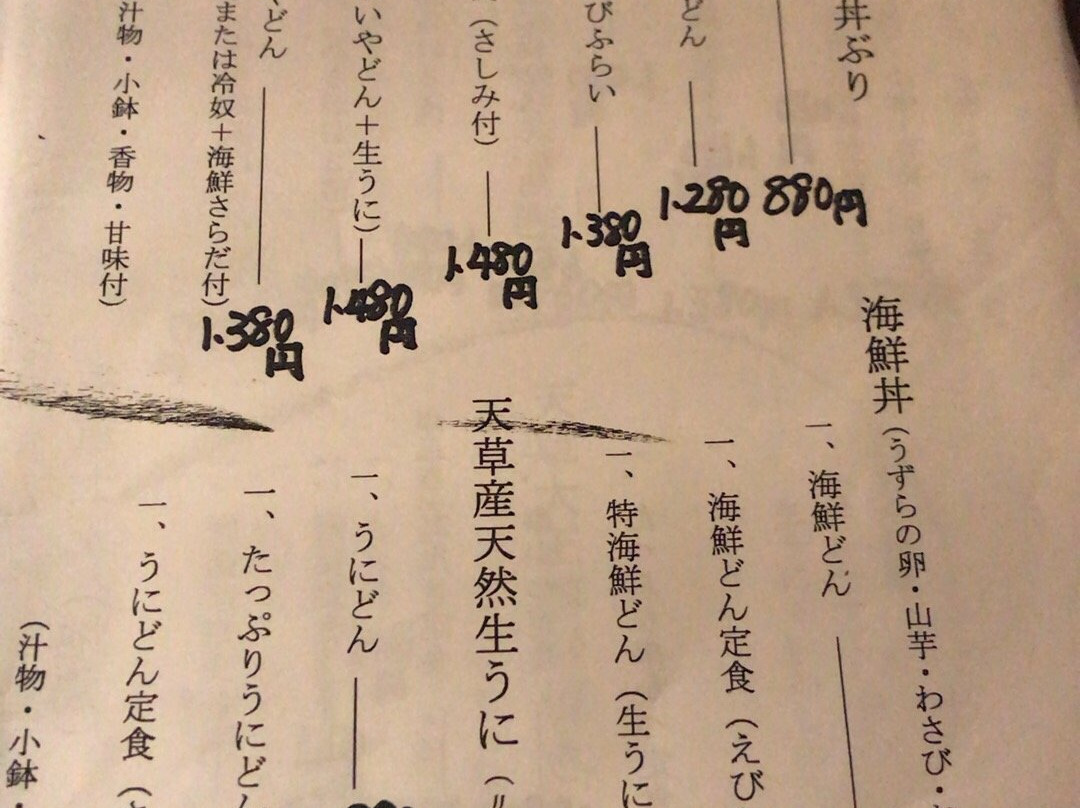 丼ぶり
880円
どん
1.280円
びふらい
1.380円
(さしみ付)
1.480円
いやどん+生うに)
1.480円
どん
または冷奴+海鮮さらだ付)
1.380円
汁物・小鉢・香物・甘味付)
海鮮丼(うずらの卵・山芋・わさび・
一、海鮮どん
一、海鮮どん定食(えび
一、特海鮮どん(生うに
天草産天然生うに(〃
一、うにどん
一、たっぷりうにどん
一、うにどん定食(
(汁物・小鉢・